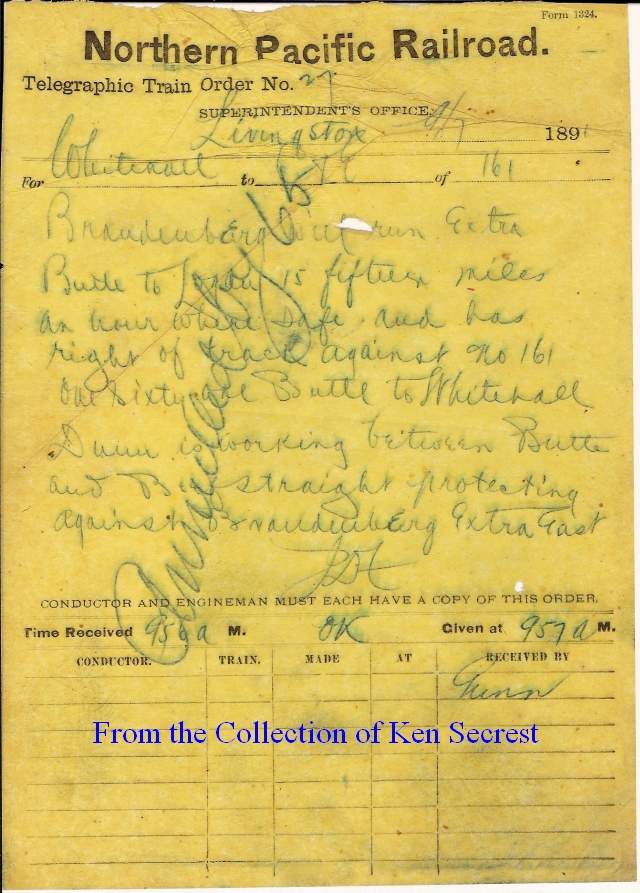 Form 1324.
Northern Pacific Railroad.
Telegraphic Train Order No. 27
SUPERINTENDENT'S OFFICE,
Livingston 9/7 1891
For Whitehall to of 161
Brandenberg will run Extra
Butte to 15 fifteen miles
an hour where safe and has
right of track against No 161
One Sixty one Butte to Whitehall
Dunn is working between Butte
and straight protecting
against Brandenberg Extra East
CONDUCTOR AND ENGINEMAN MUST EACH HAVE A COPY OF THIS ORDER.
Time Received 956a M. OK Given at 957a M.
CONDUCTOR. TRAIN. MADE AT RECEIVED BY
Gunn
From the Collection of Ken Secrest